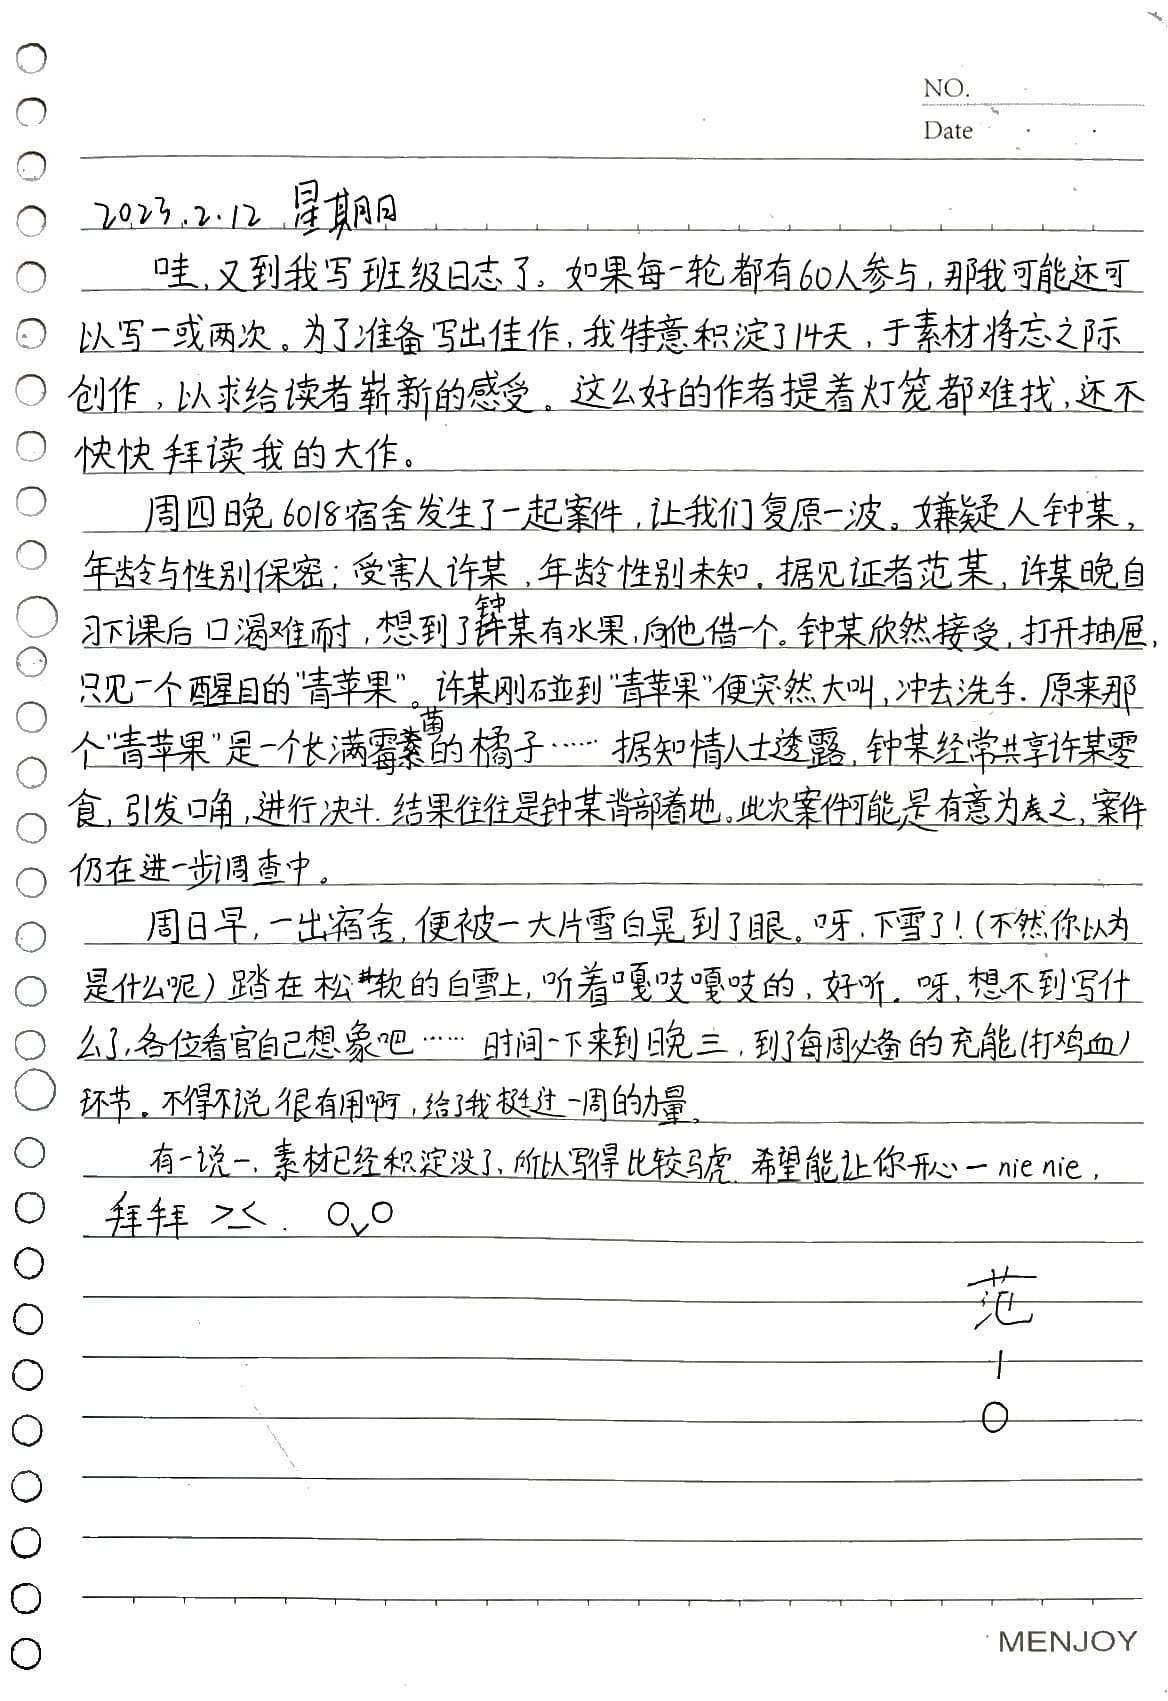 NO.
Date
2023.2.12 星期日
哇,又到我写班级日志了。如果每一轮都有60人参与,那我可能还可
以写一或两次。为了准备写出佳作,我特意积淀了14天,于素材将忘之际
创作,以求给读者崭新的感受。这么好的作者提着灯笼都难找,还不
快快拜读我的大作。
周四晚6018宿舍发生了一起案件,让我们复原一波。嫌疑人钟某,
年龄与性别保密;受害人许某,年龄性别未知。据见证者范某,许某晚自
习下课后口渴难耐,想到了钟某有水果,向他借一个。钟某欣然接受,打开抽屉,
只见一个醒目的“青苹果”。许某刚碰到“青苹果”便突然大叫,冲去洗手.原来那
个“青苹果”是一个长满霉菌的橘子……据知情人士透露,钟某经常共享许某零
食,引发口角,进行决斗.结果往往是钟某背部着地。此次案件可能是有意为之,案件
仍在进一步调查中。
周日早,一出宿舍,便被一大片雪白晃到了眼。呀,下雪了!(不然你以为
是什么呢)踏在松软的白雪上,听着嘎吱嘎吱的,好听.呀,想不到写什
么了,各位看官自己想象吧……时间一下来到晚三,到了每周必备的充能(打鸡血)
环节。不得不说很有用啊,给了我挺过一周的力量。
有一说一,素材已经积淀没了,所以写得比较马虎.希望能让你开心一nie nie,
拜拜 ><. O、O
范
1
0
MENJOY